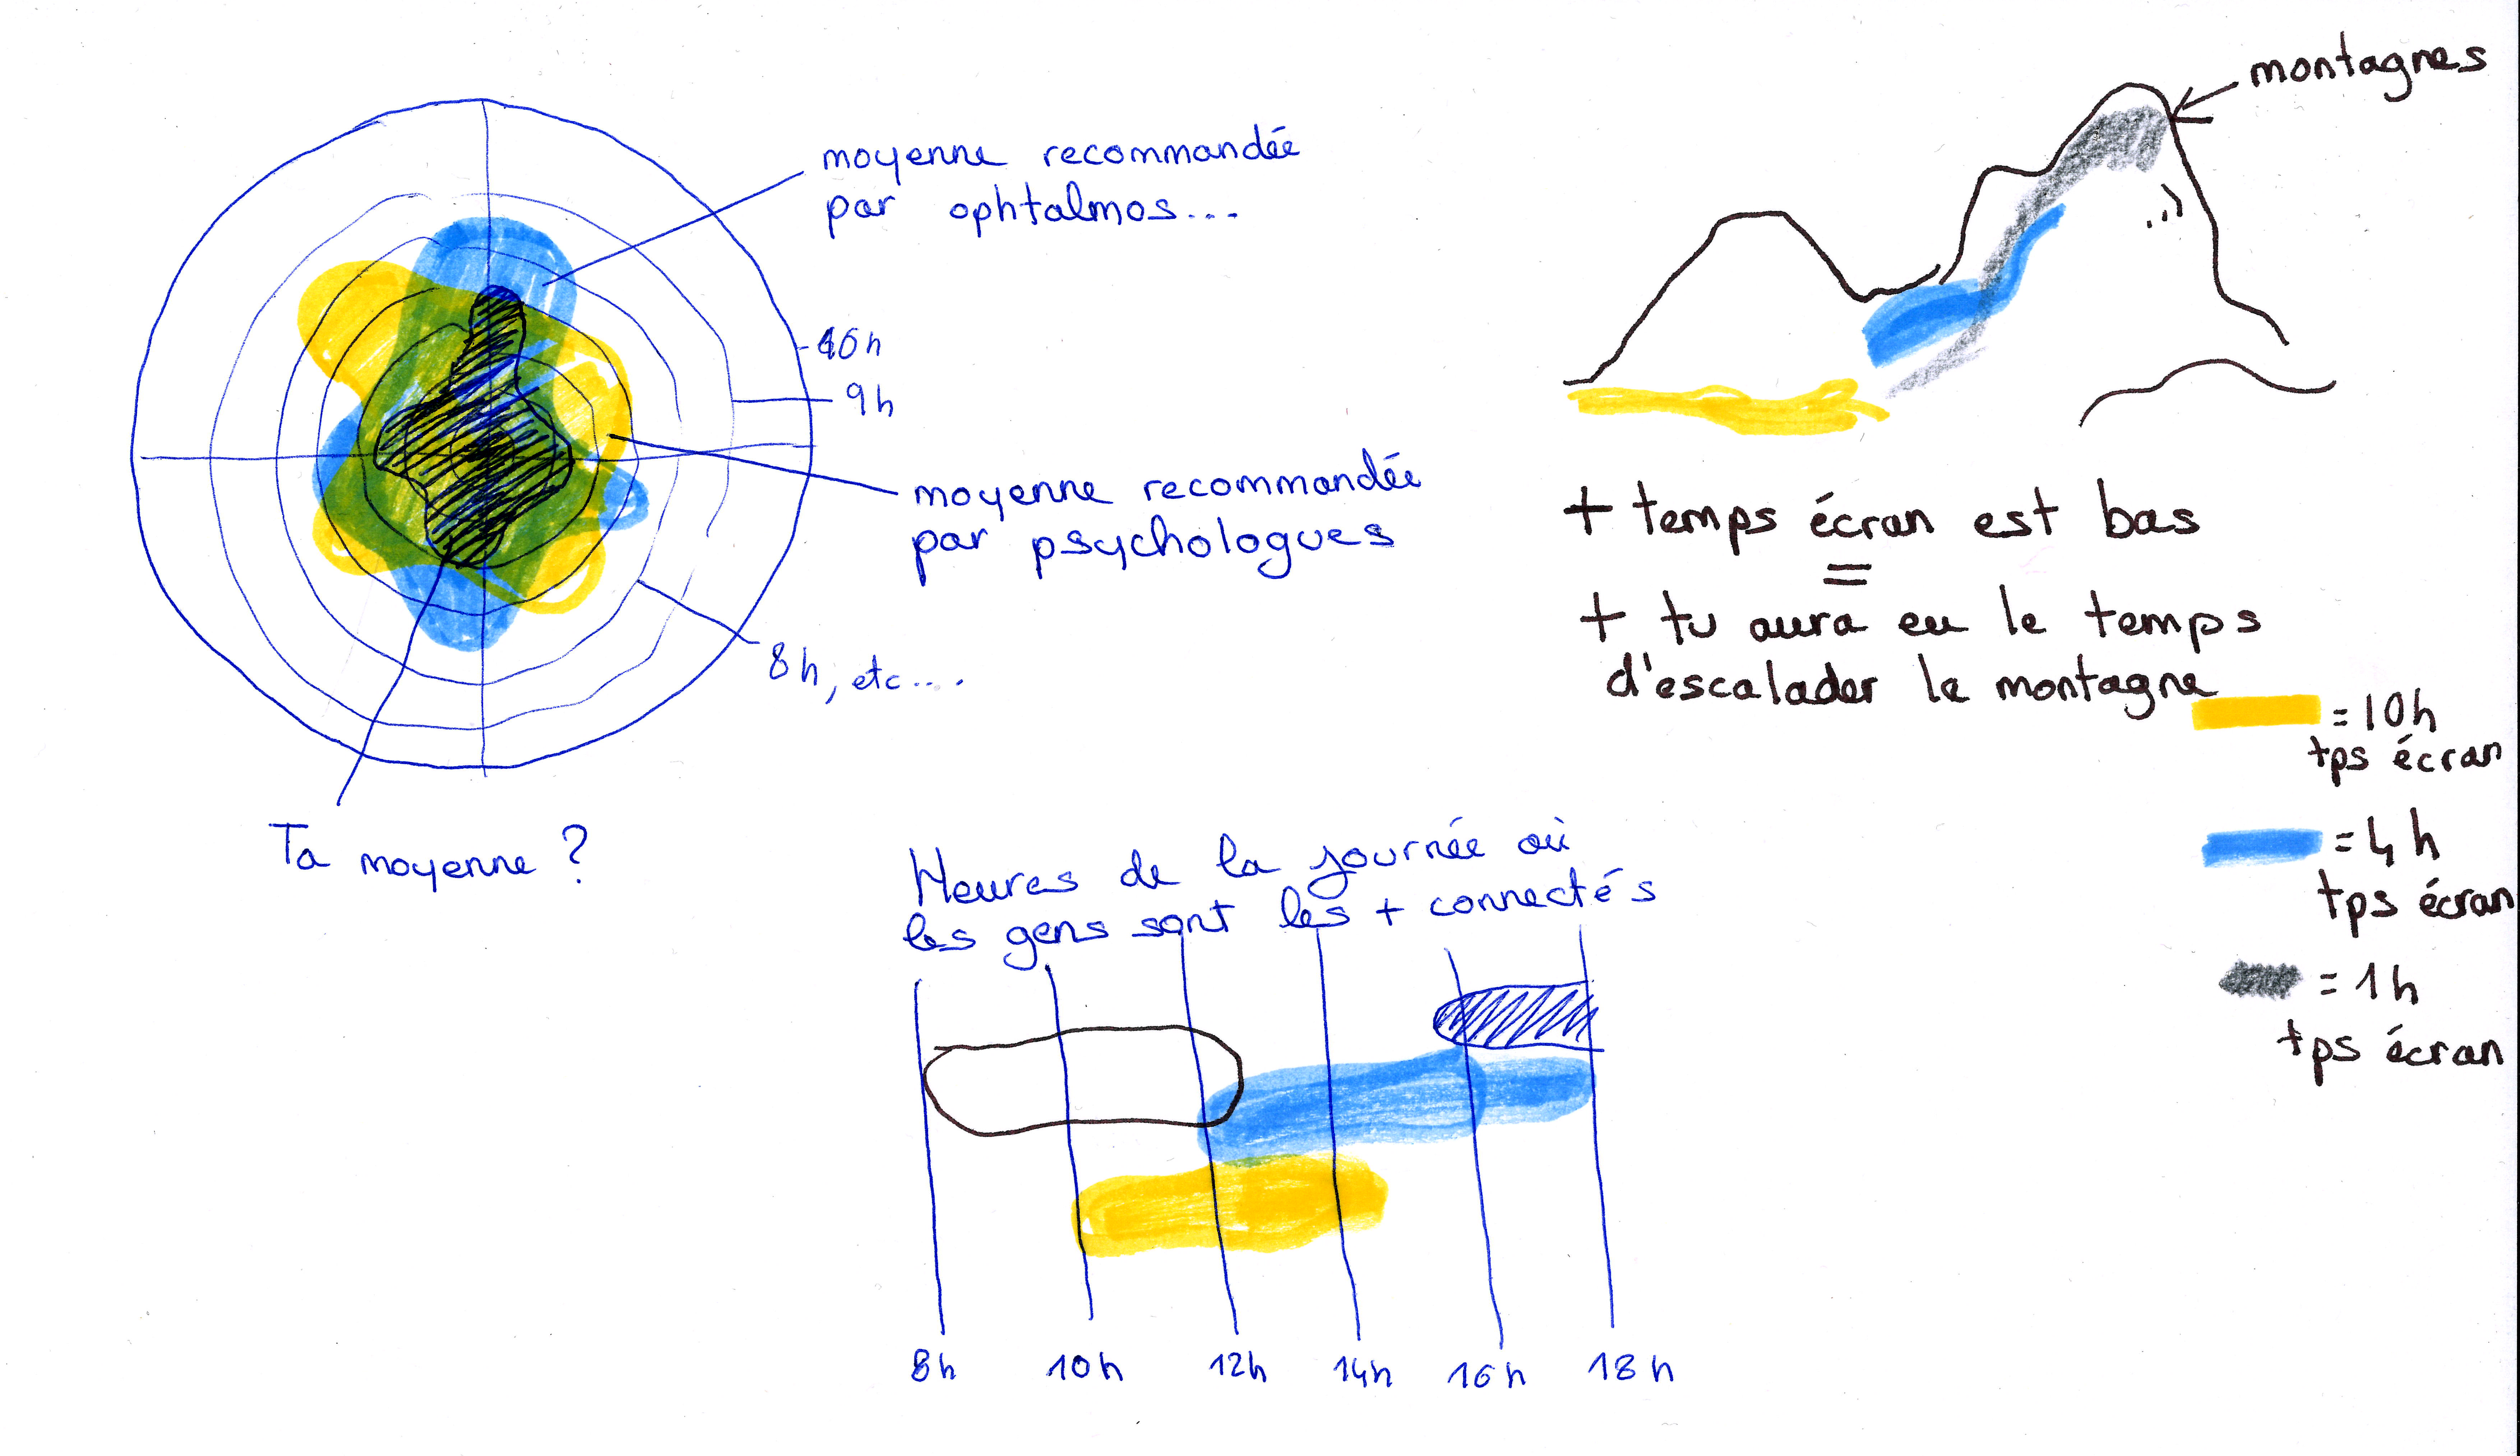 montagnes
moyenne recommandée
par ophtalmos...
10h
9h
moyenne recommandée
par psychologues
8h, etc....
Ta moyenne ?
+ temps écran est bas
=
+ tu aura eu le temps
d'escalader la montagne
= 10h
tps écran
= 4h
tps écran
= 1h
tps écran
Heures de la journée où
les gens sont les + connectés
8h 10h 12h 14h 16h 18h